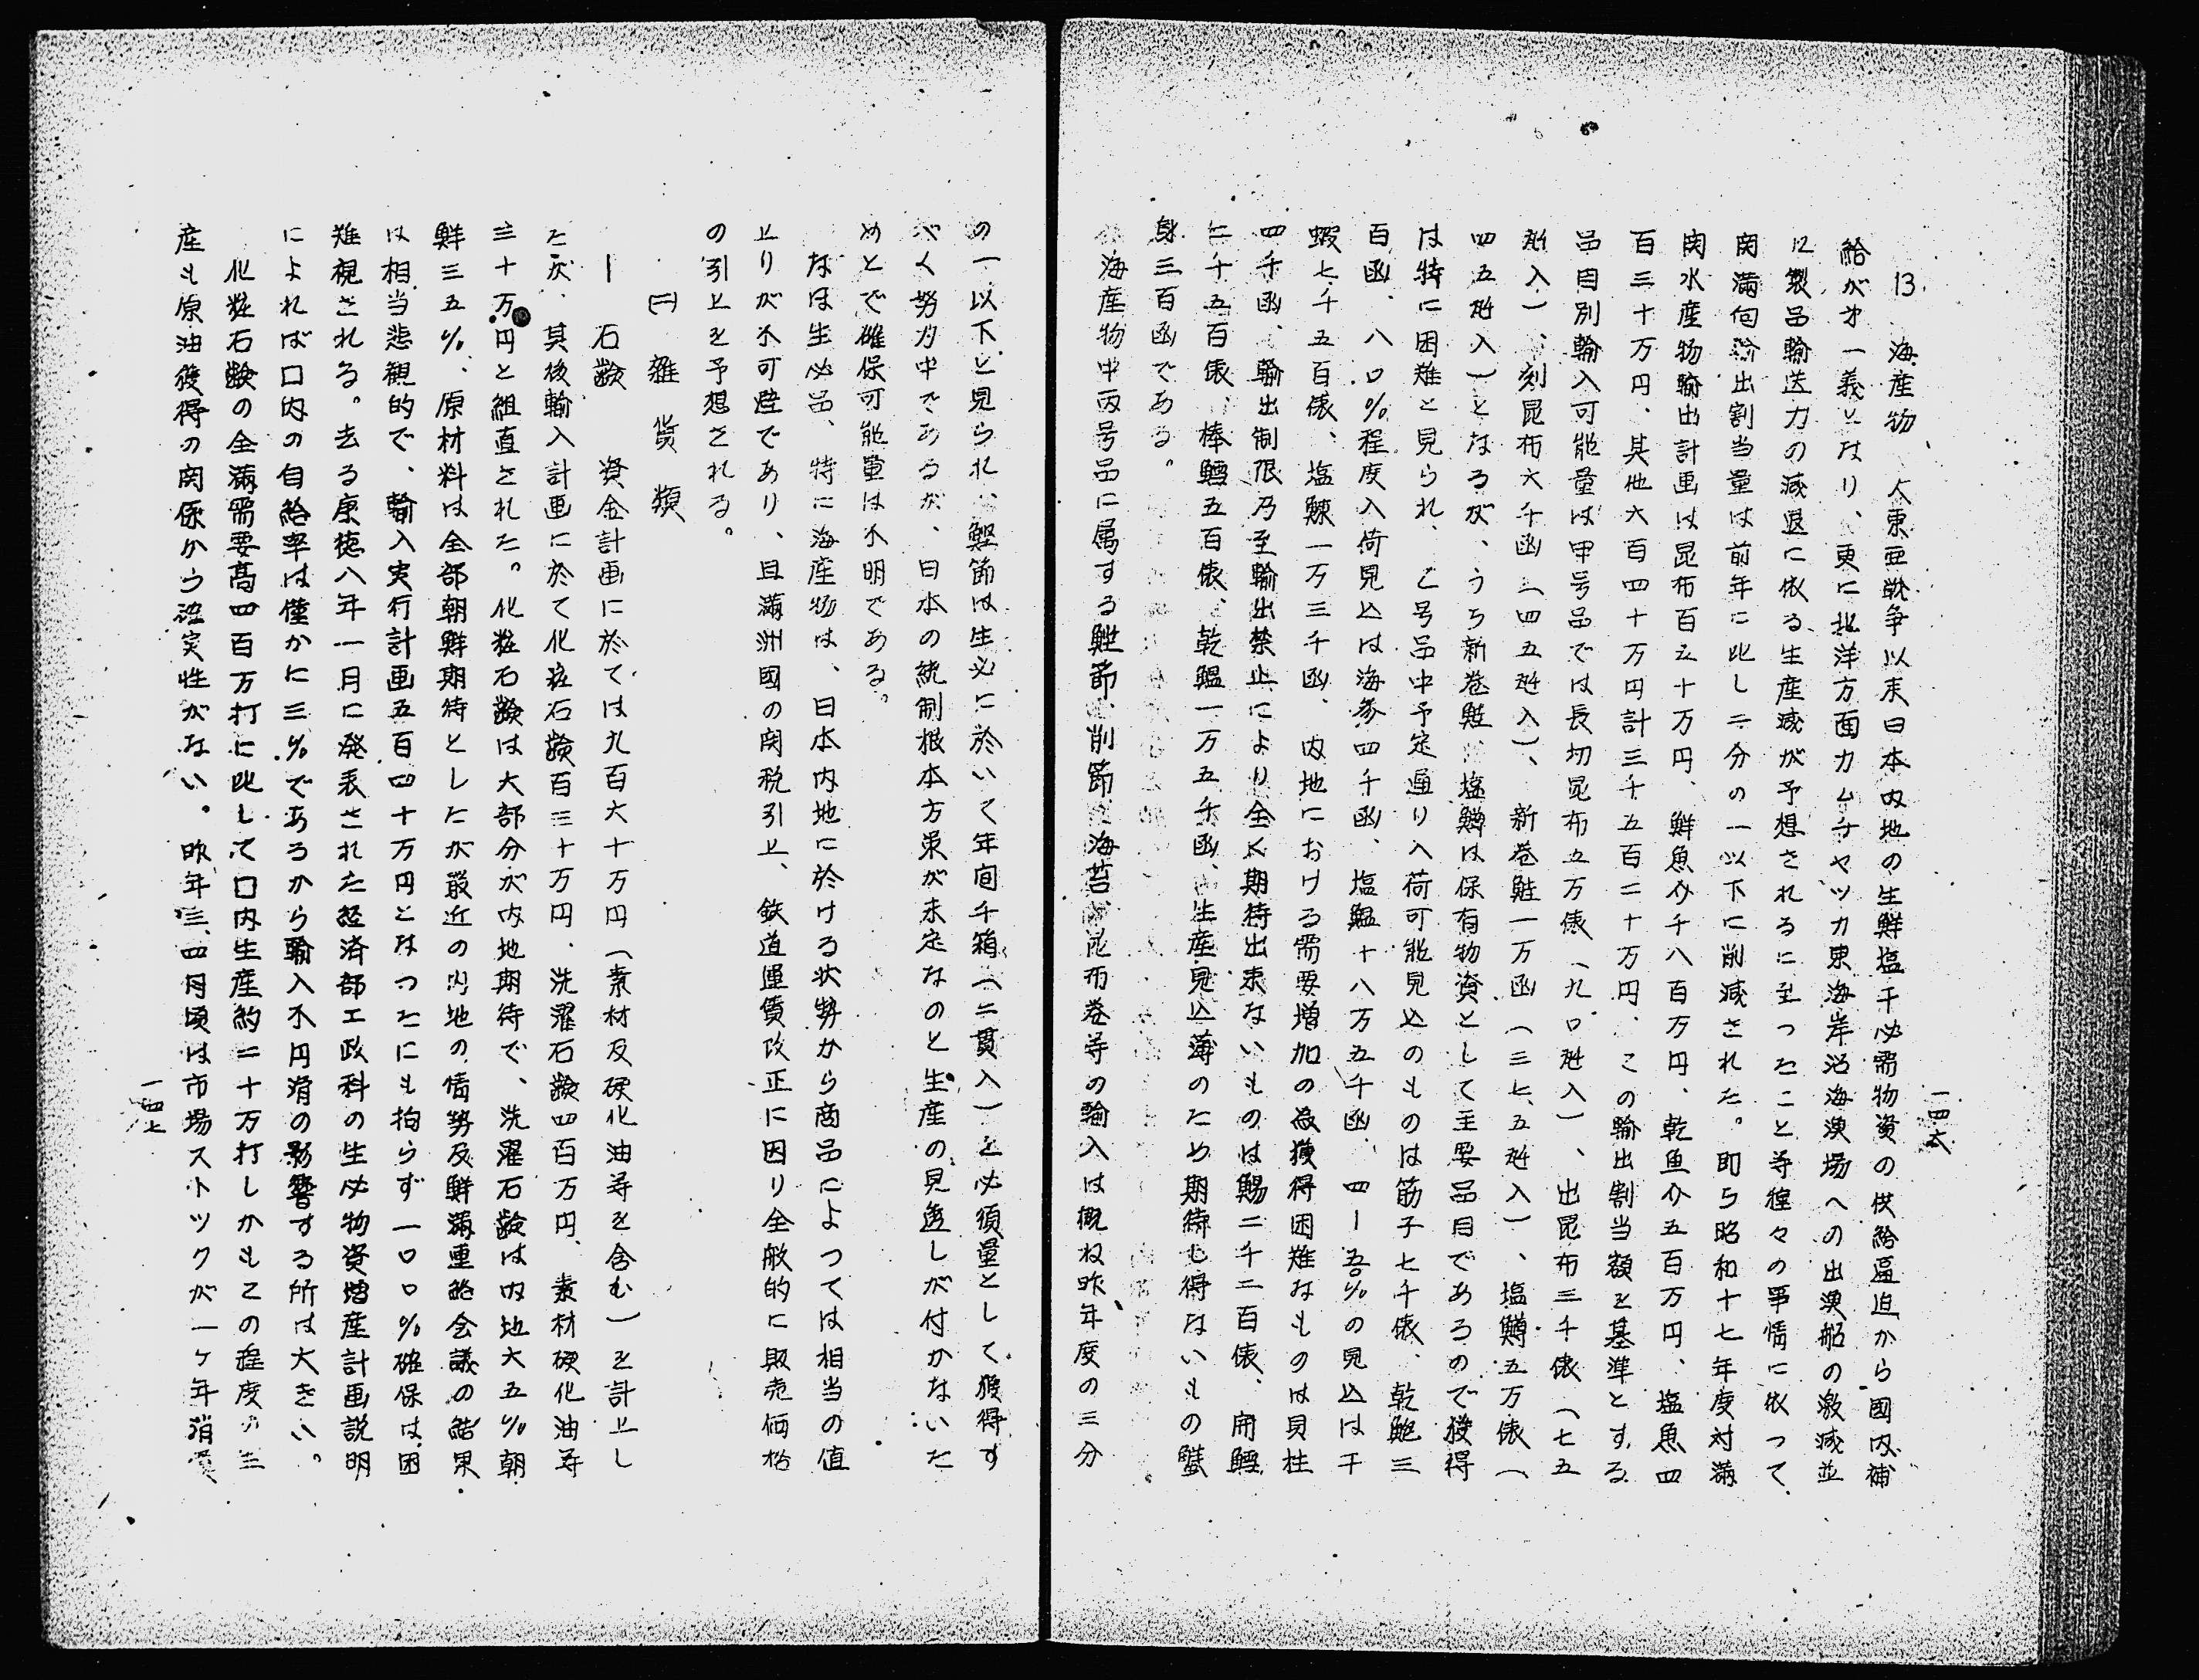 一四六
13 海産物 大東亜戦争以来日本内地の生鮮塩干必需物資の供給逼迫から國内補
給がオ一義となり、更に北洋方面カムチヤツカ東海岸沿海漁場への出漁船の激減並
に製品輸送力の減退に依る生産減が予想されるに至つたこと等種々の事情に依つて
関満向輸出割当量は前年に比し二分の一以下に削減された。即ち昭和十七年度対満
関水産物輸出計画は昆布百五十万円、鮮魚介千八百万円、乾魚介五百万円、塩魚四
百三十万円、其他六百四十万円計三千五百二十万円、この輸出割当額を基準とする
品目別輸入可能量は甲号品では長切昆布五万俵(九〇瓩入)、出昆布三千俵(七五
瓩入)、刻昆布六千函(四五瓩入)、新巻鮭一万函(三七、五瓩入)、塩鱒五万俵(
四五瓩入)となるが、うち新巻鮭、塩鱒は保有物資として主要品目であるので獲得
は特に困難と見られ、乙号品中予定通り入荷可能見込のものは筋子七千俵、乾鮑三
百函、八〇%程度入荷見込は海参四千函、塩鰮十八万五千函、四ー五%の見込は干
蝦七千五百俵、塩鰊一万三千函、内地における需要増加の為獲得困難なものは貝柱
四千函、輸出制限乃至輸出禁止により全く期待出来ないものは鯣二千二百俵、開鱈
二千五百俵、棒鱈五百俵、乾鰮一万五千函、生産見込薄のため期待し得ないもの蟹
缶三百函である。
海産物中丙号品に属する鰹節、削節、海苔、昆布巻等の輸入は概ね昨年度の三分
の一以下と見られ、鰹節は生必に於いて年间千箱(二貫入)を必須量として獲得す
べく努力中であるが、日本の統制根本方策が未定なのと生産の見透しが付かないた
めとで確保可能量は不明である。
なほ生必品、特に海産物は、日本内地に於ける状勢から商品によつては相当の値
上りが不可避であり、且満洲國の関税引上、鉄道運賃改正に因り全般的に販売価格
の引上を予想される。
㈡ 雑貨類
1 石鹸 資金計画に於ては九百六十万円(素材及硬化油等を含む)を計上し
た次、其後輸入計画に於て化粧石鹸百三十万円、洗濯石鹸四百万円、素材硬化油等
三十万円と組直された。化粧石鹸は大部分が内地期待で、洗濯石鹸は内地六五%朝
鮮三五%、原材料は全部朝鮮期待としたが最近の内地の情勢及鮮満連絡会議の結果
は相当悲観的で、輸入実行計画五百四十万円となつたにも拘らず一〇〇%確保は困
難視される。去る康徳八年一月に発表された経済部工政科の生必物資増産計画説明
によれば口内の自給率は僅かに三%であるから輸入不円滑の影響する所は大きい。
化粧石鹸の全満需要高四百万打に比して口内生産約二十万打しかもこの程度の生
産も原油獲得の関係から確実性がない。昨年三、四月頃は市場ストツクが一ケ年消費
一四七